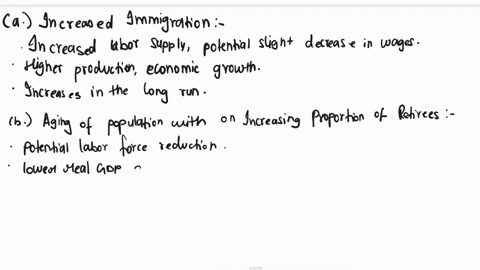 (a.) Increased Immigration :-
· Increased labor supply, potential slight decrease in wages.
· Higher production, economic growth.
· Increases in the long run.
(b.) Aging of population with an Increasing Proportion of Retirees :-
· Potential labor force reduction.
· lower real GDP